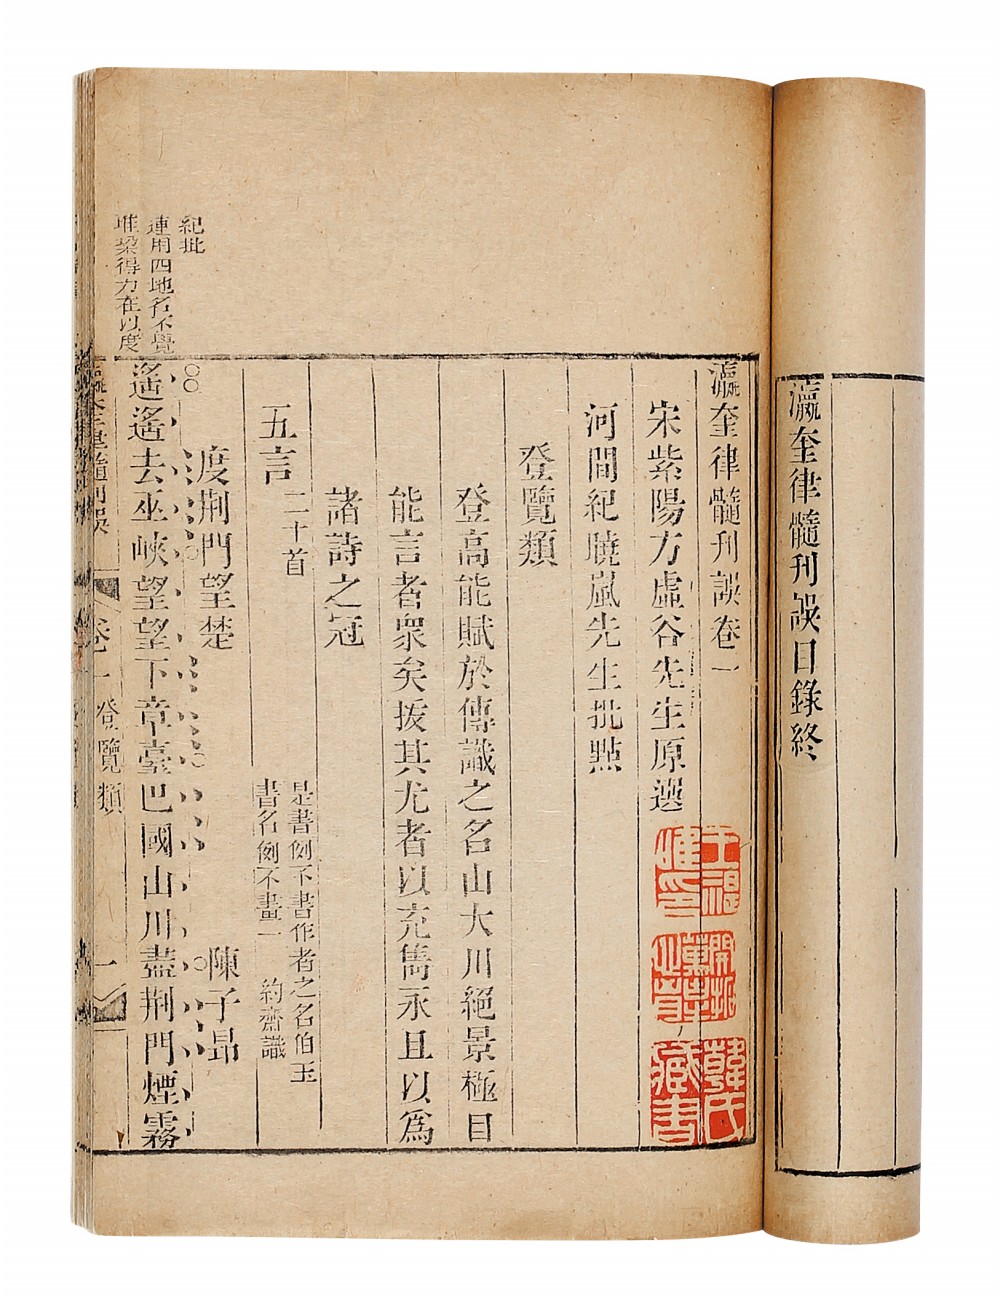 瀛奎律髓刋誤目錄終
瀛奎律髓刋誤卷一
宋紫陽方虛谷先生原選
河間紀曉嵐先生批點
登覽類
登高能賦於傳識之名山大川絕景極目
能言者衆矣拔其尤者以充雋永且以爲
諸詩之冠
五言 二十首
是書例不書作者之名伯玉
書名例不畫一 約齋識
度荆門望楚 陳子昻
紀批
連用四地名不覺
堆梁得力在以度
遙遙去巫峽望望下章臺巴國山川盡荆門煙霧
瀛奎律髓刋誤 卷一 登覽類 一
韓氏
藏書